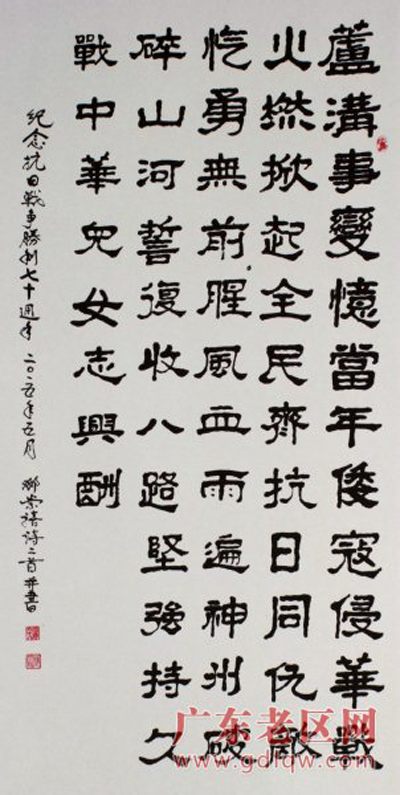 蘆溝事變憶當年倭寇侵華戰
火燃掀起全民齊抗日同仇敵
忾勇無前腥風血雨遍神州破
碎山河誓復收八路堅強持久
戰中華兒女志興酬
紀念抗日戰爭勝利七十週年 二〇一五年五月 崇禧詩二首并書
广东老区网
www.gdlqw.com